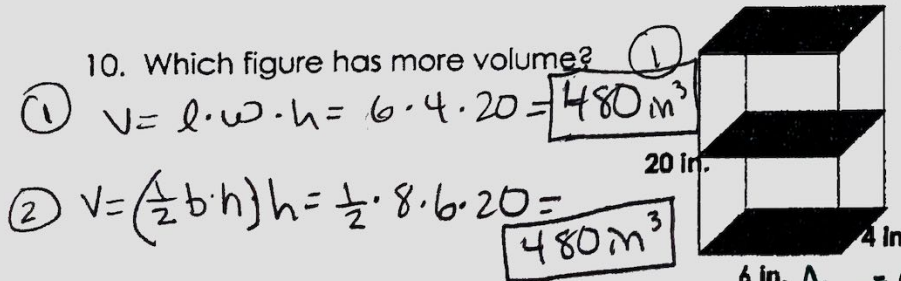 10. Which figure has more volume? ①
① V = l·w·h = 6·4·20 = 480 in³
20 in.
② V = (½ b·h) h = ½·8·6·20 =
480 in³
4 in
6 in.